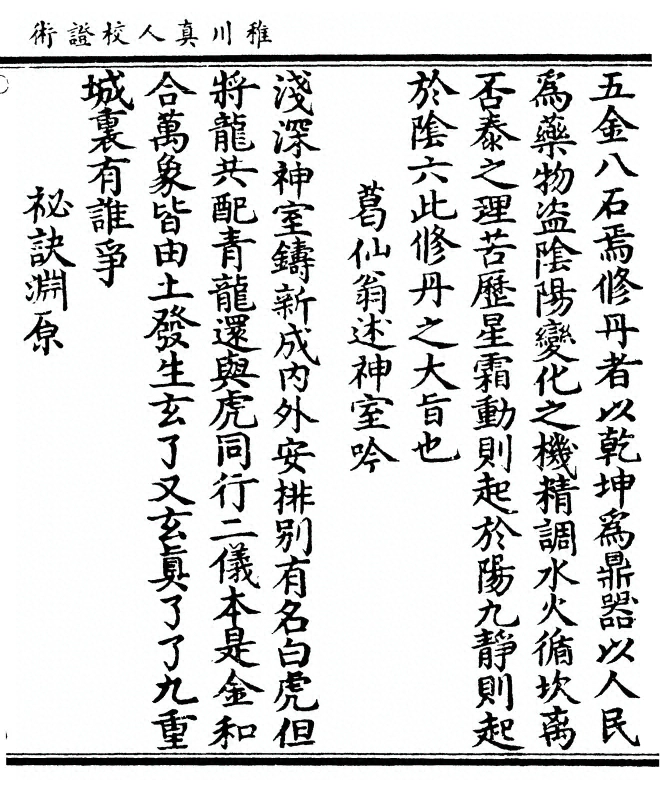 稚川真人校證術
五金八石焉修丹者以乾坤爲鼎器以人民
爲藥物盜陰陽變化之機精調水火循坎离
否泰之理苦歷星霜動則起於陽九靜則起
於陰六此修丹之大旨也
葛仙翁述神室吟
淺深神室鑄新成內外安排别有名白虎但
將龍共配青龍還與虎同行二儀本是金和
合萬象皆由土發生玄了又玄眞了了九重
城裏有誰爭
祕訣淵原